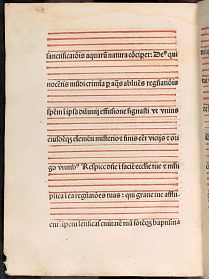 sanctificatõis aquarũ natura cõcipet: De⁹ qui
nocẽtis mũdi crimĩa p aq̃s abluẽs regñationis
spẽm ĩ ipsa diluuij effusione signasti vt vnius
eiusdẽq3 elemẽti misterio et finis eẽt vicijs et ori
go vtutib⁹ Respice dñe ĩ faciẽ ecclesie tue et mlti
plica ĩ ea regñatiões tuas: qui gratie tue afflu
entis impetu letificas ciuitatẽ tuã fõtẽq3 baptismatis